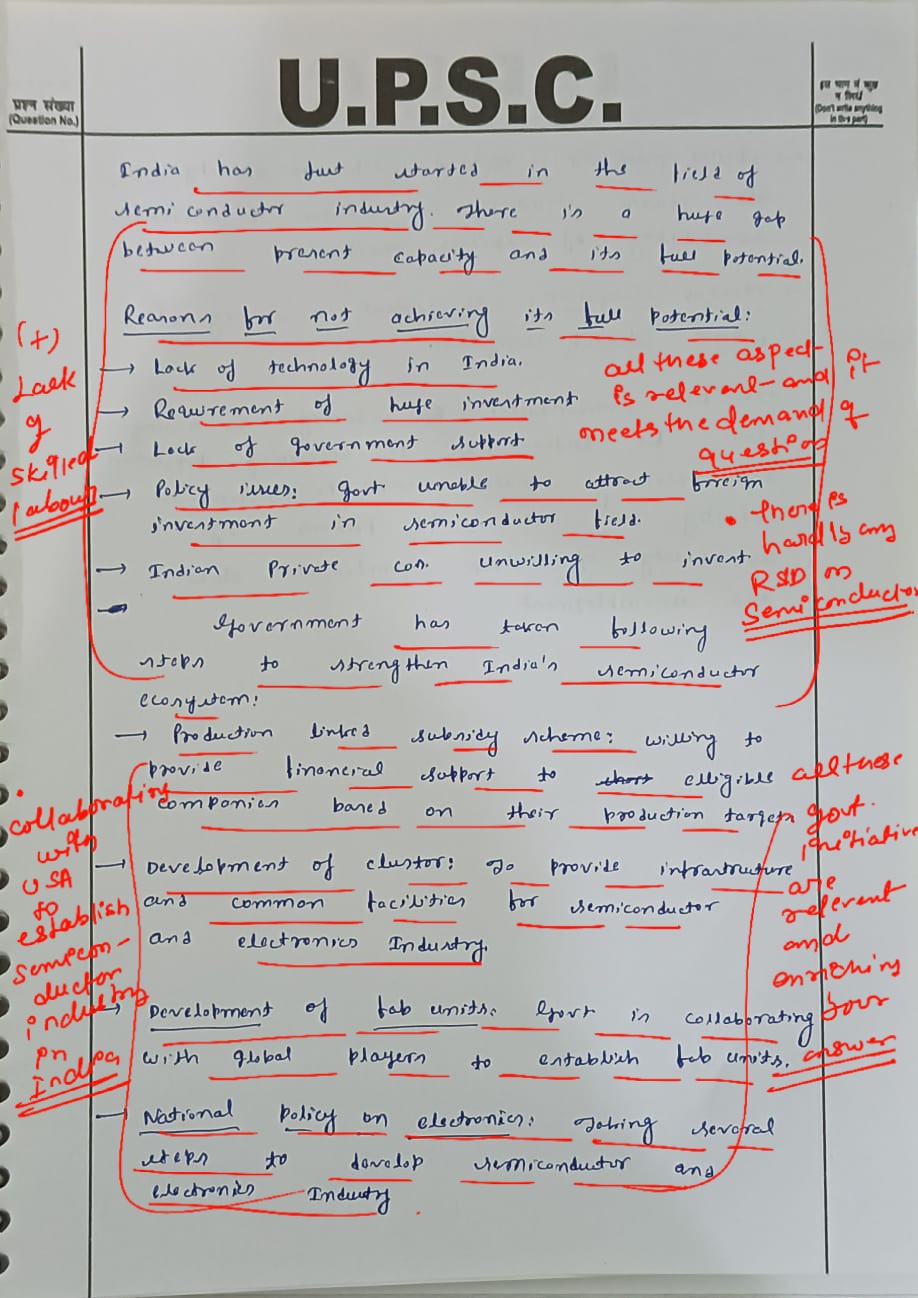 U.P.S.C.
प्रश्न संख्या
(Question No.)
इस भाग में कुछ
न लिखें
(Don't write anything
in this part)
India has just started in the field of
semi conductor industry. There is a huge gap
between present capacity and its full potential.
Reasons for not achieving its full potential:
→ Lack of technology in India.
→ Requirement of huge investment
→ Lack of government support
→ Policy issues: govt unable to attract foreign
investment in semiconductor field.
→ Indian Private con. unwilling to invest.
Government has taken following
steps to strengthen India's semiconductor
ecosystem:
→ Production linked subsidy scheme: willing to
provide financial support to elligible
companies based on their production targets
→ Development of clustor: To provide infrastructure
and common facilities for semiconductor
and electronics Industry.
→ Development of fab units: Govt is collaborating
with global players to establish fab units.
→ National policy on electronics: Taking several
steps to develop semiconductor and
electronics Industry
(+)
Lack
of
skilled
labour
all these aspect
is relevant and it
meets the demand of
question
• there is
hardly any
R&D on
Semiconductor
• collaborating
with
USA
to
establish
semicon-
ductor
industry
in
India
all these
govt.
initiative
are
relevent
and
enriching
your
answer